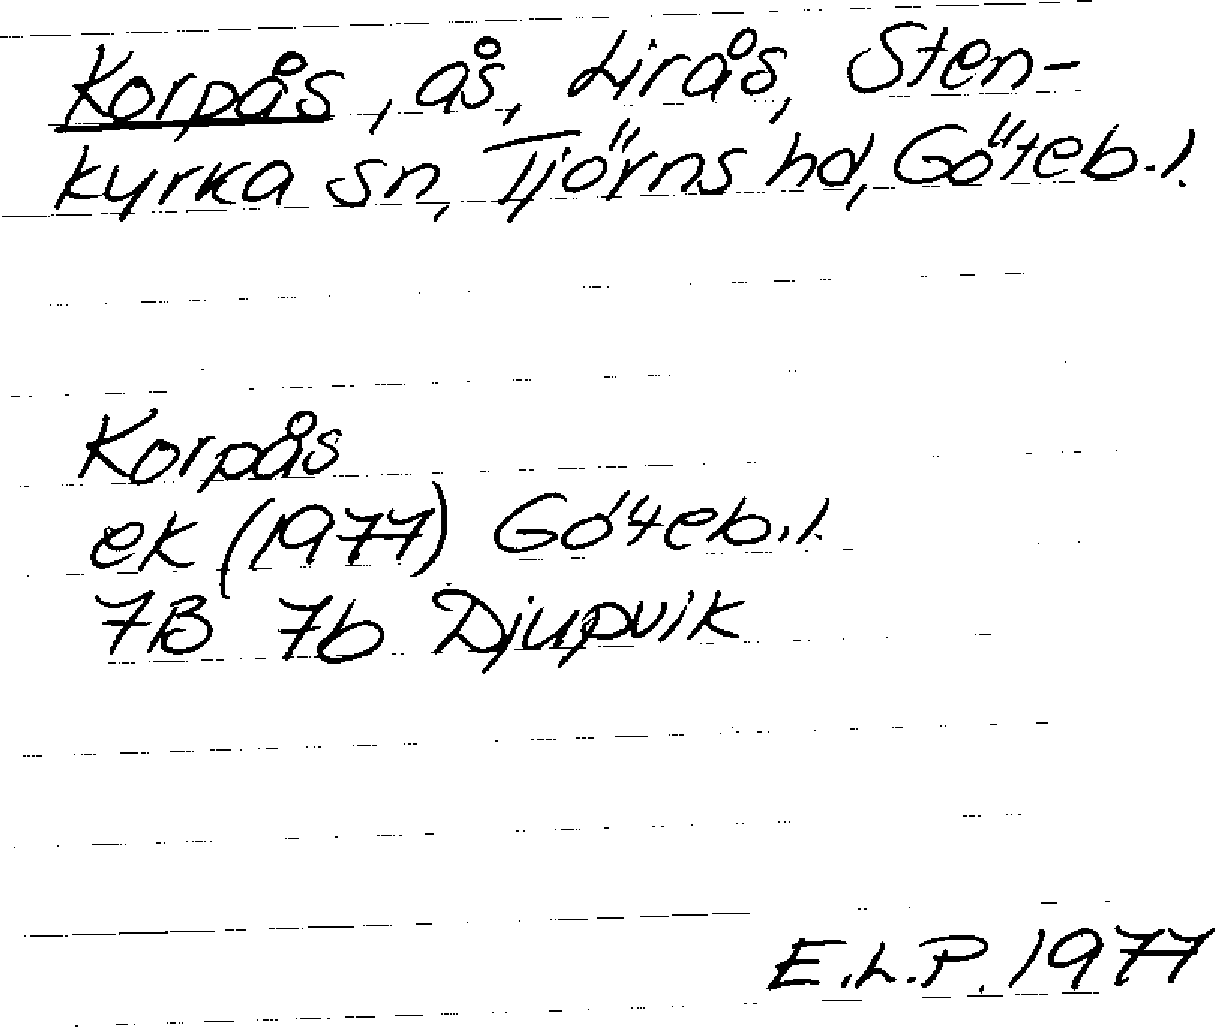 Korpås, ås, Lirås, Sten-
kyrka sn, Tjörns hd, Göteb.l.
Korpås
ek (1977) Göteb.l.
7B 7b Djupvik
E.L.P. 1977